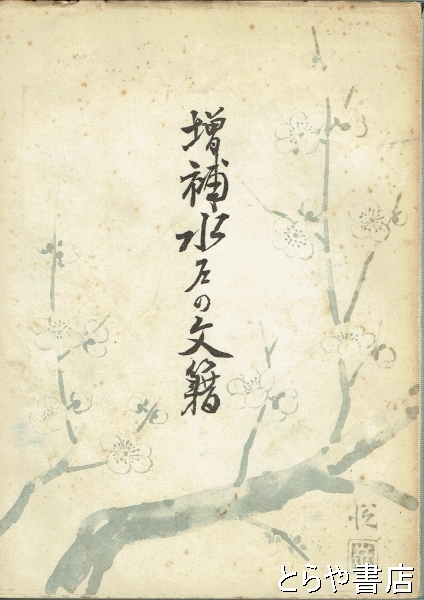 増補水戸の文籍
とらや書店